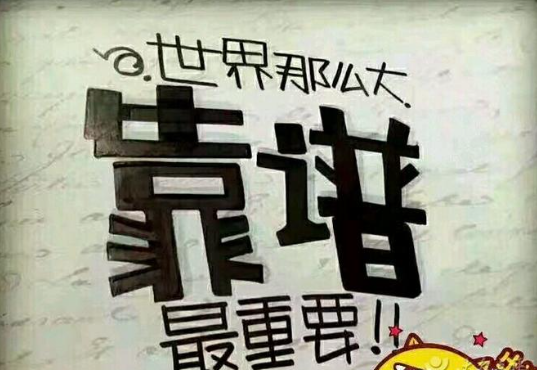 世界那么大
靠谱
最重要!!